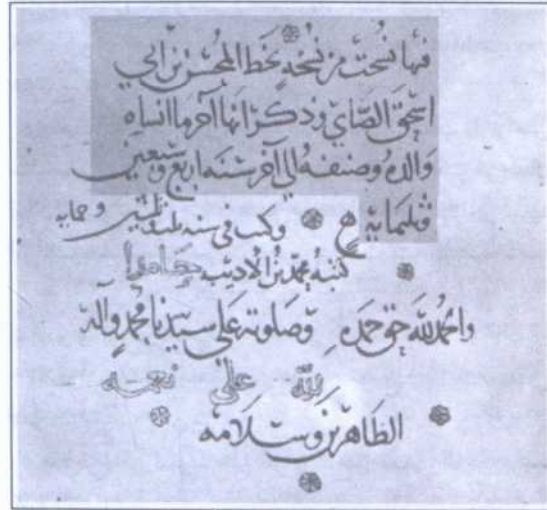 فيها نسخت من نسخه بخط المحسن بن ابي
اسحق الصابي وذكر انها آخر ما انساه
والده وصنفه الي آخر سنه اربع وسبعين
وثلثمايه
وكتب في سنه وثلثين وخمسمايه
كتبه محمد بن الاديب حامدا
والحمد لله حق حمده وصلوته علي سيدنا محمد وآله
لله علي نعمه
الطاهرين وسلامه